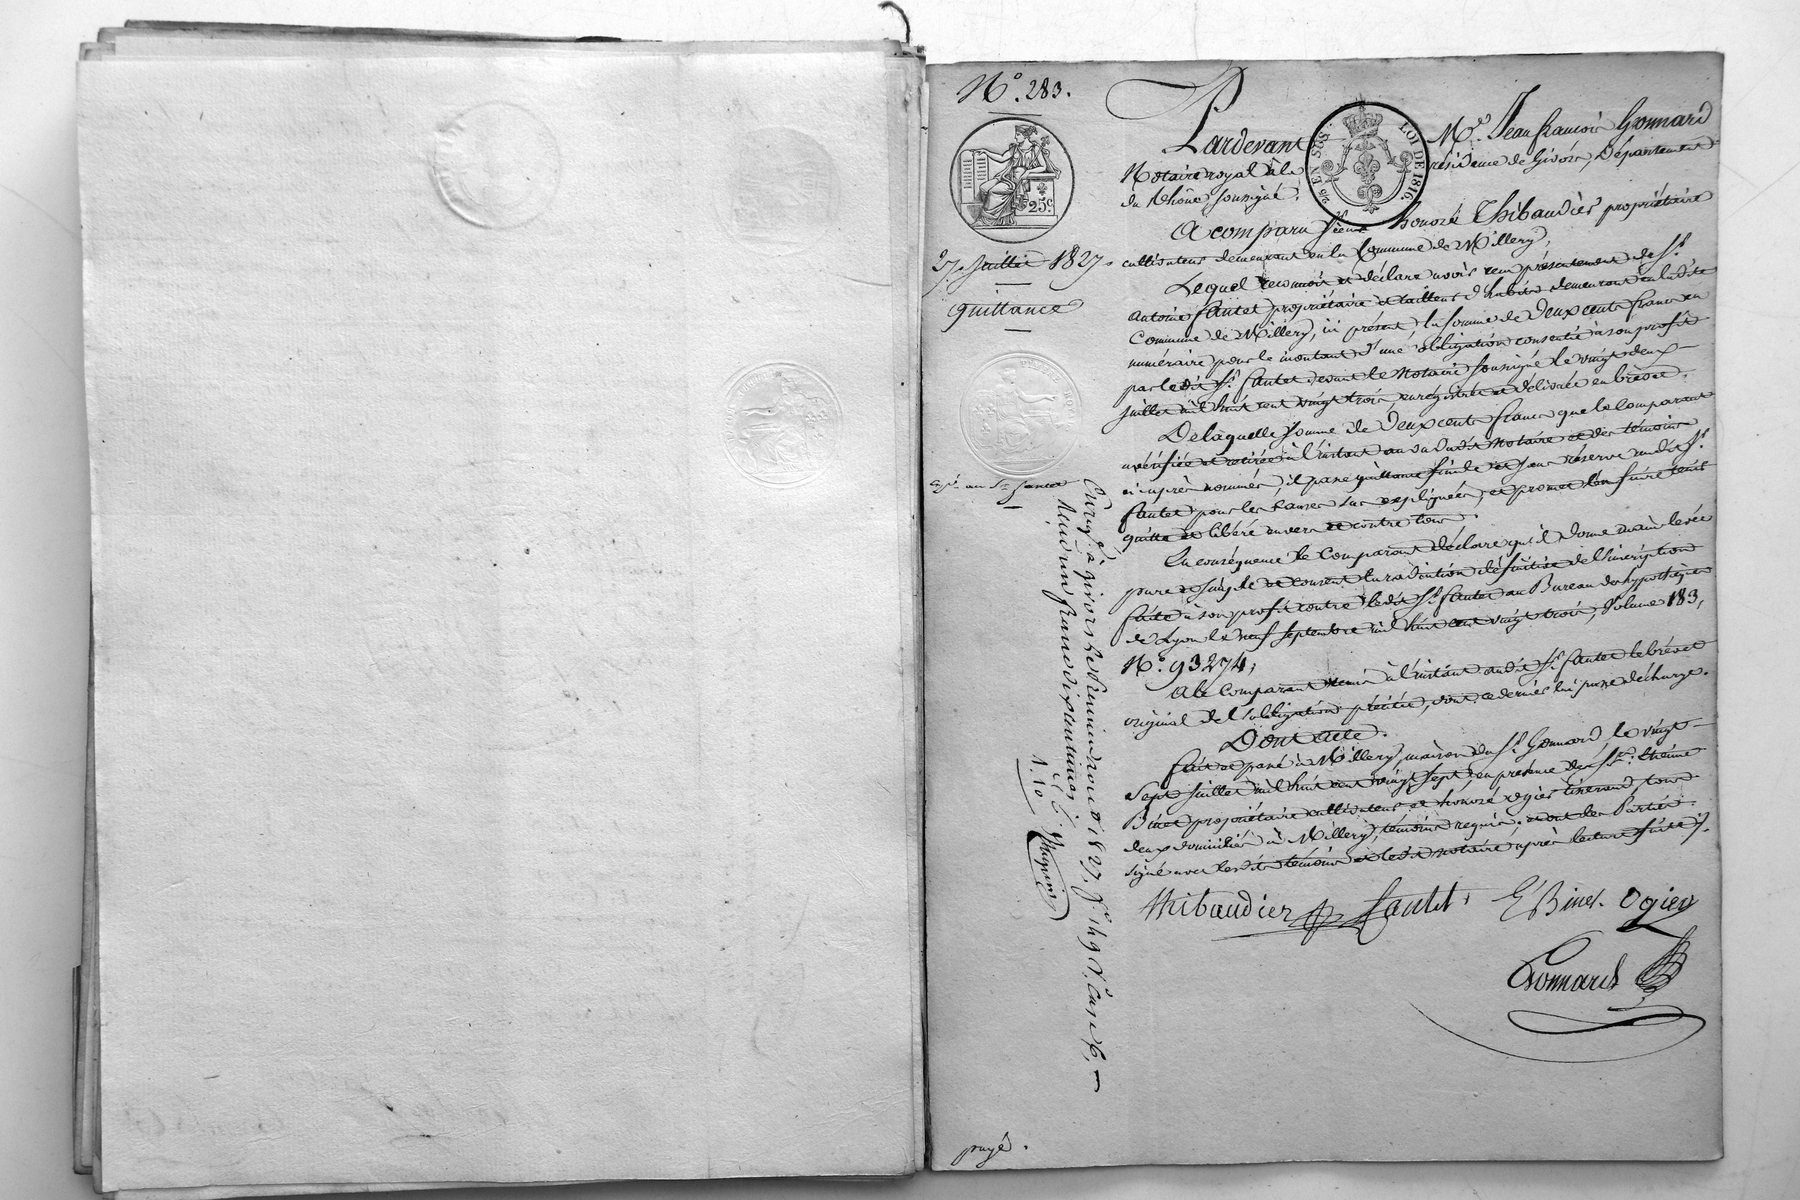 N.º 283.
25.c
27. Juillet 1827.
quittance
exp.on au S.r fantet
2/10 EN SUS.
LOI DE 1816.
Pardevant M.e Jean françois Gonnard
Notaire royal à la résidence de Givors, Département
du Rhône, soussigné.
A comparu sieur honoré Thibaudier propriétaire
cultivateur demeurant en la Commune de Millery,
Lequel reconnoit et déclare avoir reçu présentement du S.r
Antoine fantet propriétaire et tailleur d'habits demeurant en ladite
Commune de Millery, ici présent, la somme de Deux cents francs en
numéraire pour le montant d'une obligation consentie à son profit
par ledit S.r fantet devant le Notaire soussigné le vingt deux
juillet mil huit cent vingt trois, enregistrée et délivrée en brevet.
De laquelle somme de Deux cents francs que le Comparant
a vérifiée et retirée à l'instant au vu dudit Notaire et des témoins
ci après nommés, il passe quittance finale et sans réserve audit S.r
fantet pour les causes sus expliquées, et promet l'en faire tenir
quitte et libéré envers et contre tous.
En conséquence le Comparant déclare qu'il donne main levée
pure et simple et consent la radiation définitive de l'inscription
faite à son profit contre ledit S.r fantet au Bureau des hypothèques
de Lyon le neuf septembre mil huit cent vingt trois, Volume 183,
N.º 93274,
A le Comparant remis à l'instant audit S.r fantet le brevet
original de l'obligation précitée, dont ce dernier lui passe décharge.
Dont acte.
fait et passé à Millery, maison du S.r Gonnard, le vingt
Sept juillet mil huit cent vingt sept, en présence des S.rs Etienne
Binet propriétaire cultivateur et honoré Ogier tisserand, tous
deux domiciliés à Millery, témoins requis; et ont les Parties
signé avec lesdits témoins et ledit notaire après lecture faite.
thibaudier fantet EBinet. Ogier
Gonnard
Enreg.é à givors le Premier aout 1827, f.o
Reçu un franc dix centimes
1.10
payé.